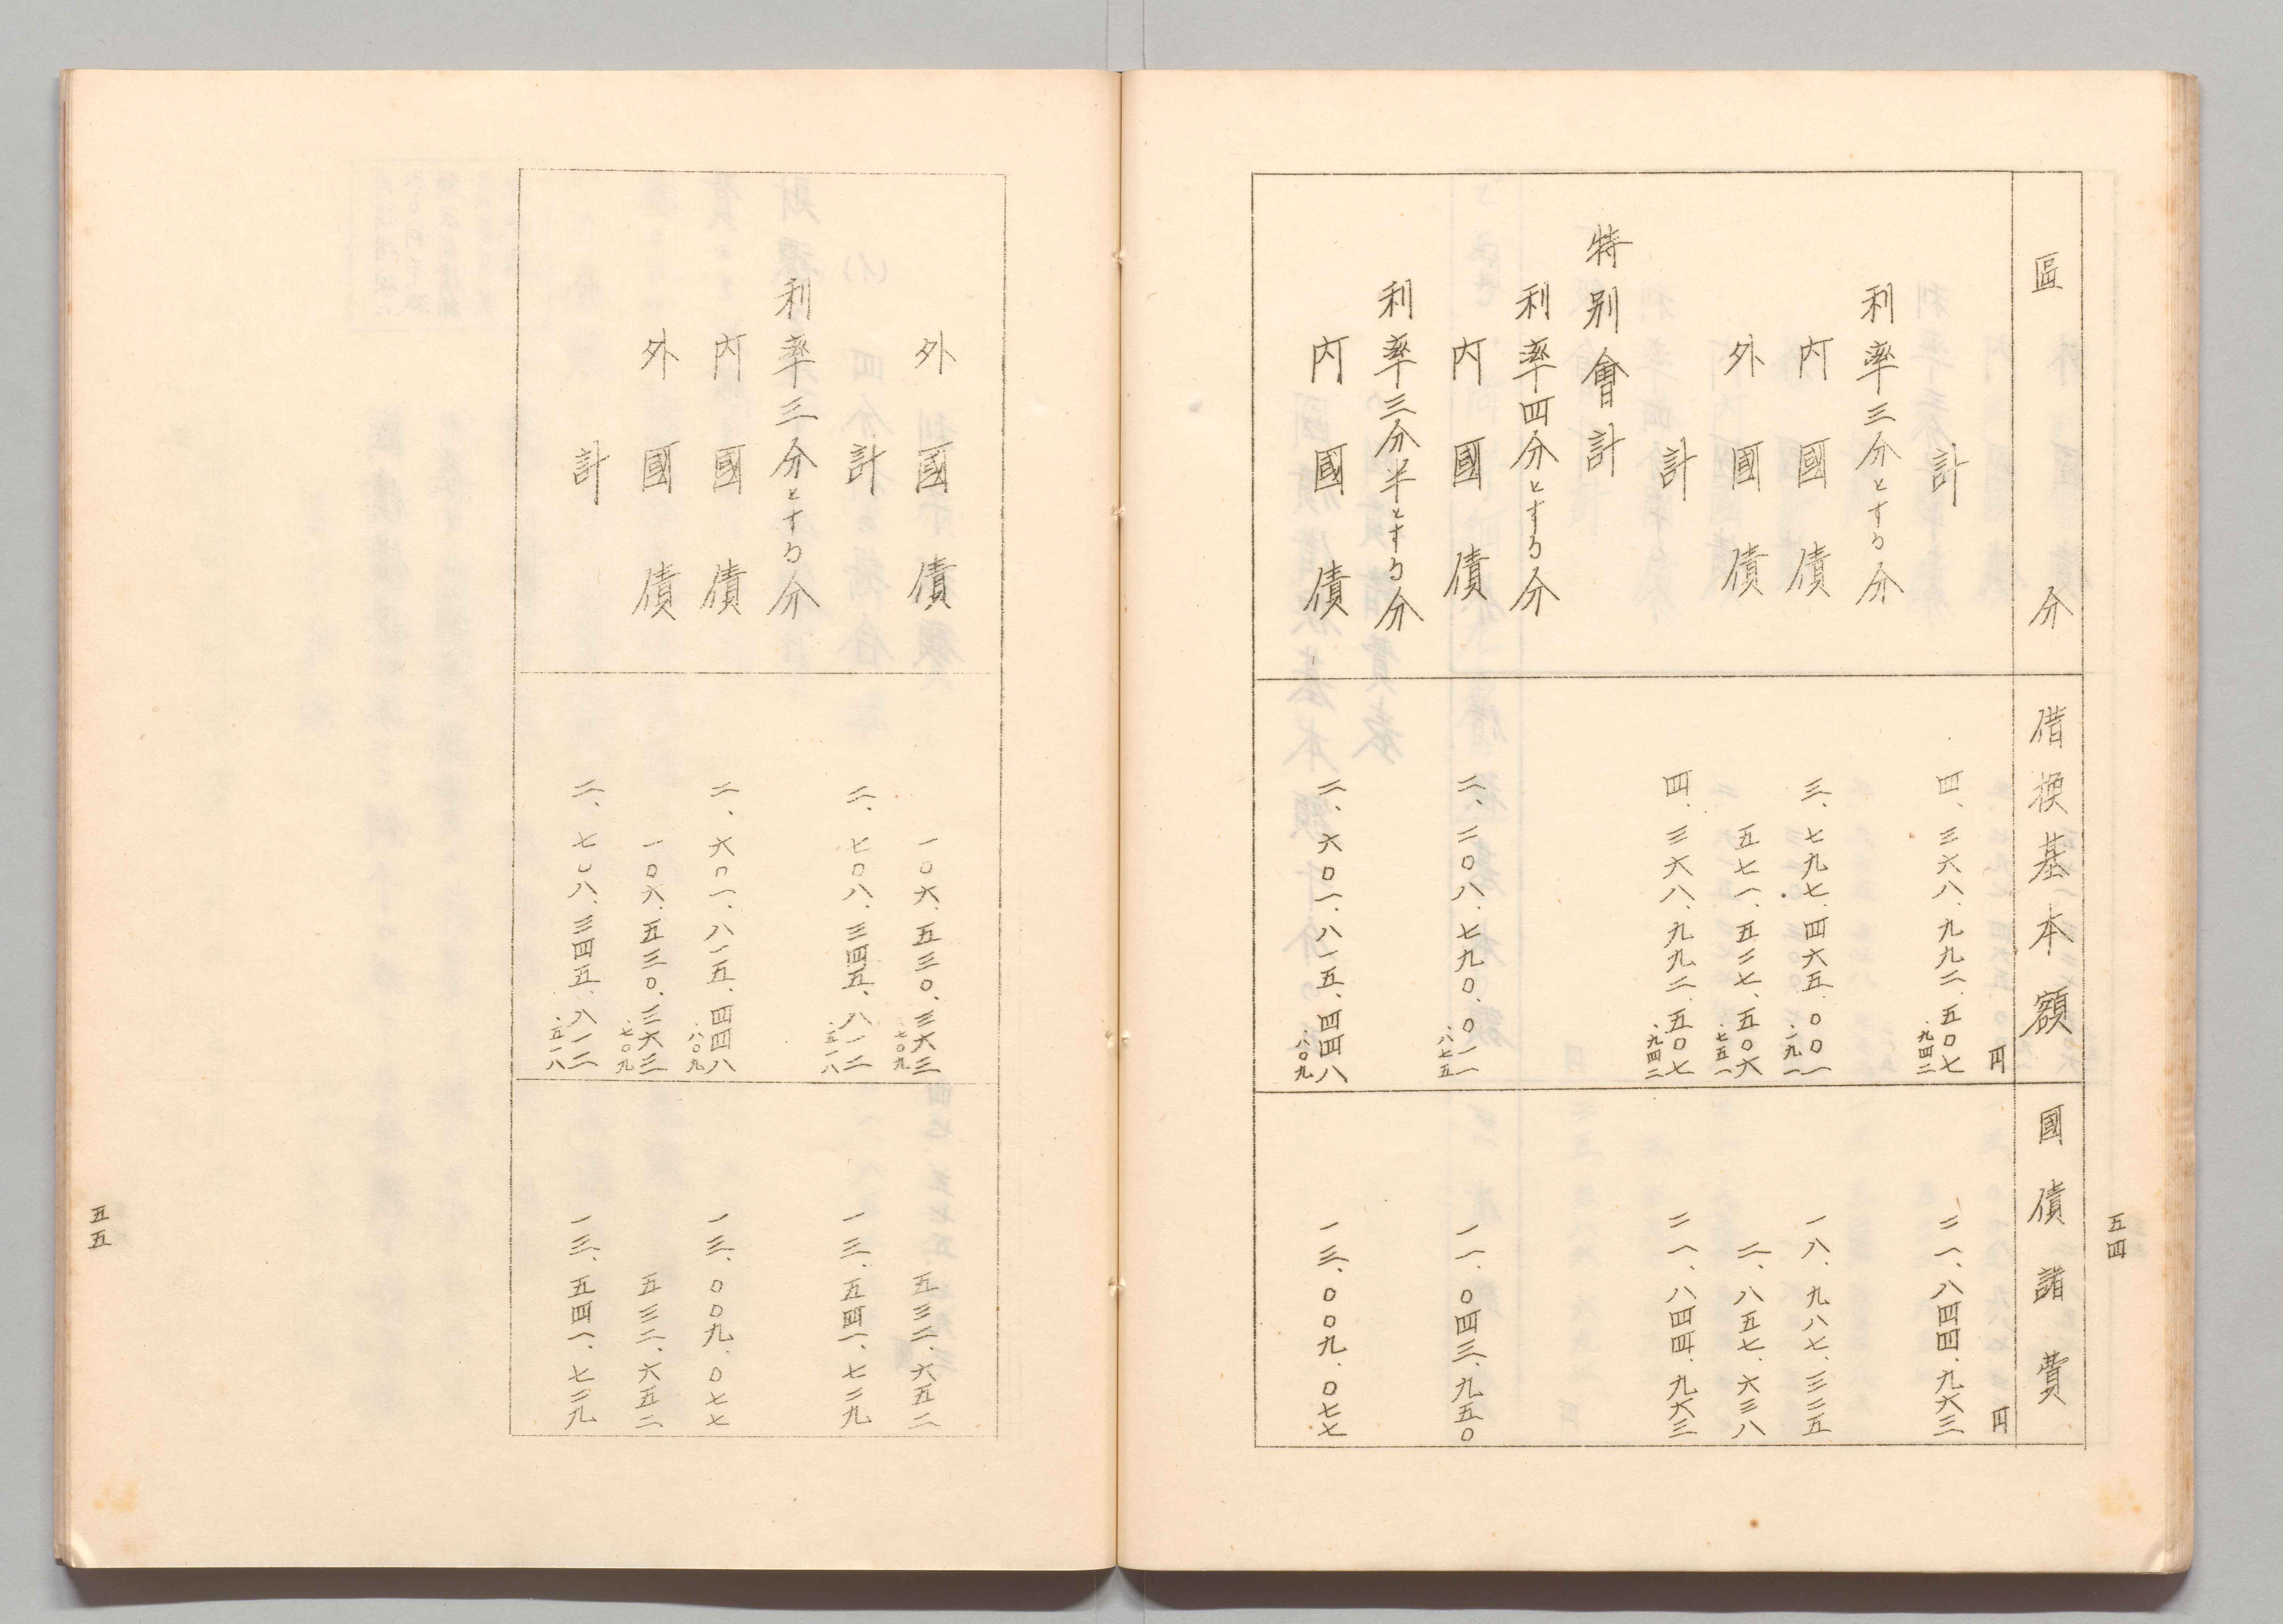 五四
區分 借換基本額 國債諸費
円 円
計 四、三六八、九九二、五〇七.九四二 二一、八四四、九六三
利率三分とする分
内國債 三、七九七、四六五、〇〇一.一九一 一八、九八七、三二五
外國債 五七一、五二七、五〇六.七五一 二、八五七、六三八
計 四、三六八、九九二、五〇七.九四二 二一、八四四、九六三
特別會計
利率四分とする分
内國債 二、二〇八、七九〇、〇一一.八七五 一一、〇四三、九五〇
利率三分半とする分
内國債 二、六〇一、八一五、四四八.八〇九 一三、〇〇九、〇七七
外國債 一〇六、五三〇、三六三.七〇九 五三二、六五二
計 二、七〇八、三四五、八一二.五一八 一三、五四一、七二九
利率三分とする分
内國債 二、六〇一、八一五、四四八.八〇九 一三、〇〇九、〇七七
外國債 一〇六、五三〇、三六三.七〇九 五三二、六五二
計 二、七〇八、三四五、八一二.五一八 一三、五四一、七二九
五五